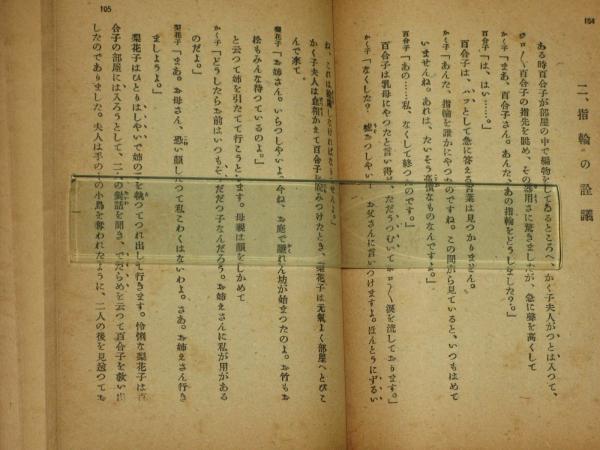 104
二、指輪の詮議
ある時百合子が部屋の中で編物をしてゐるところへ、かく子夫人がつとは入つて、
ジローヽ百合子の指先を眺め、その器用さに驚きましたが、急に聲を高くして
かく子「まあ、百合子さん。あんた、あの指輪をどうしました？。」
百合子「は、はい……。」
百合子は、ハツとして急に答える言葉は見つかりません。
かく子「あんた、指輪を誰かにやつたのですね。この間から見ていると、いつもはめて
いませんね。あれは、たいそう高價なものなんですよ。」
百合子「あの……私、なくして終つたのです。」
百合子は乳母にやつたと言い得ず、ただうつむいて 涙を流しております。
かく子「なくした？ 嘘おつしやい！ お父さんに言いつけますよ。ほんとうにずるい
105
ね、これは しなければなりませんよ。」
かく子夫人は血相かえて百合子を睨みつけたとき、梨花子は元氣よく部屋へとびこ
んで來て、
梨花子「お姉さん。いらつしやいよ。今ね、お庭で隱れん坊が始まつたのよ。お竹もお
松もみんな待つているのよ。」
と云つて姉を引たてて行こうとします。母親は顔をしかめて
かく子「どうしたらお前はいつもそ、だだつ子なんだろう。お姉えさんに私が用がある
のだよ。」
梨花子「まあ。お母さん、恐い顔したつて私こわくはないわよ。さあ。お姉えさん行き
ましようよ。」
梨花子はひとりはしやいで姉の手を執つてつれ出して行きます。怜悧な梨花子は百
合子の部屋には入ろうとして、二人の對話を聞き、でたらめを云つて百合子を救い出
したのでありました。夫人は手の中の小鳥を奪われたように、二人の後を見送つてお